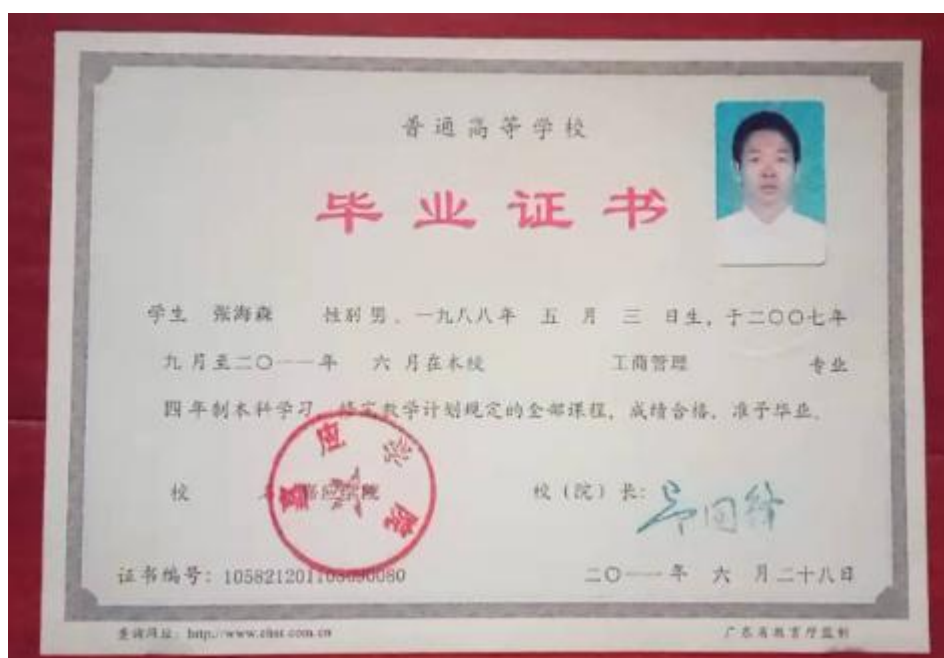 普通高等学校
毕业证书
学生 张海森 性别 男、一九八八年 五 月 三 日生，于二〇〇七年
九 月至二〇一一年 六 月在本校 工商管理 专业
四 年制本科学习，修完教学计划规定的全部课程，成绩合格，准予毕业。
校 名：嘉应学院 校（院）长：
嘉应学院
证书编号：105821201105090080 二〇一一年 六 月二十八日
查询网址：http://www.chsi.com.cn 广东省教育厅监制